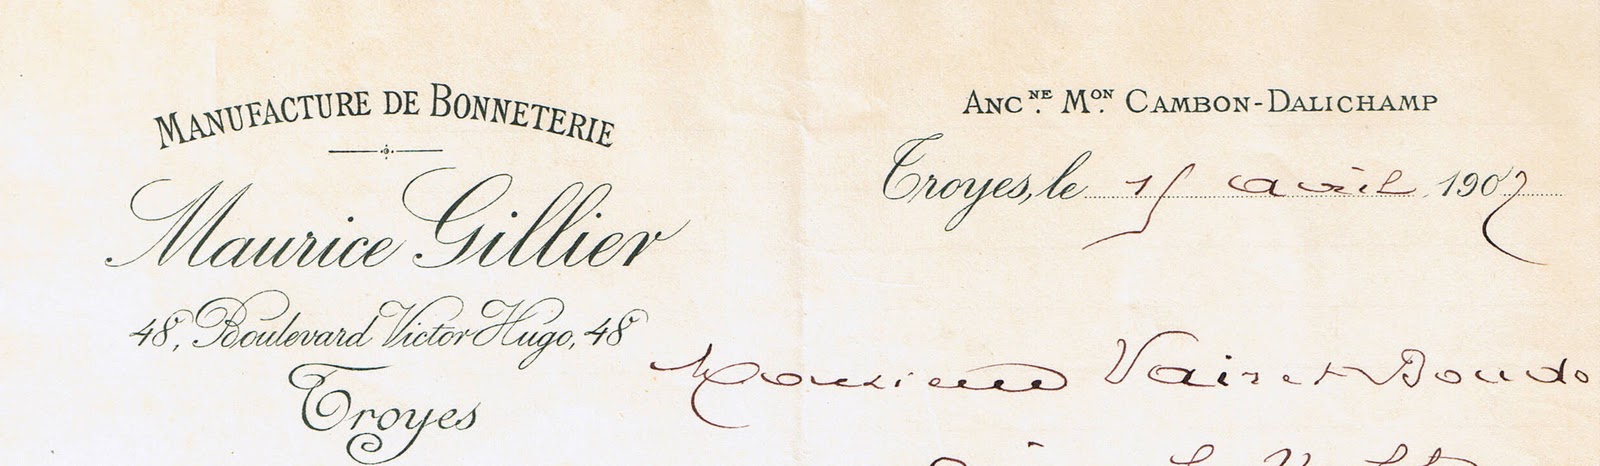 MANUFACTURE DE BONNETERIE
Maurice Gillier
48, Boulevard Victor Hugo, 48
Troyes
ANC.NE MON. CAMBON-DALICHAMP
Troyes, le 15 avril 1907
Monsieur Vairet-Boudo